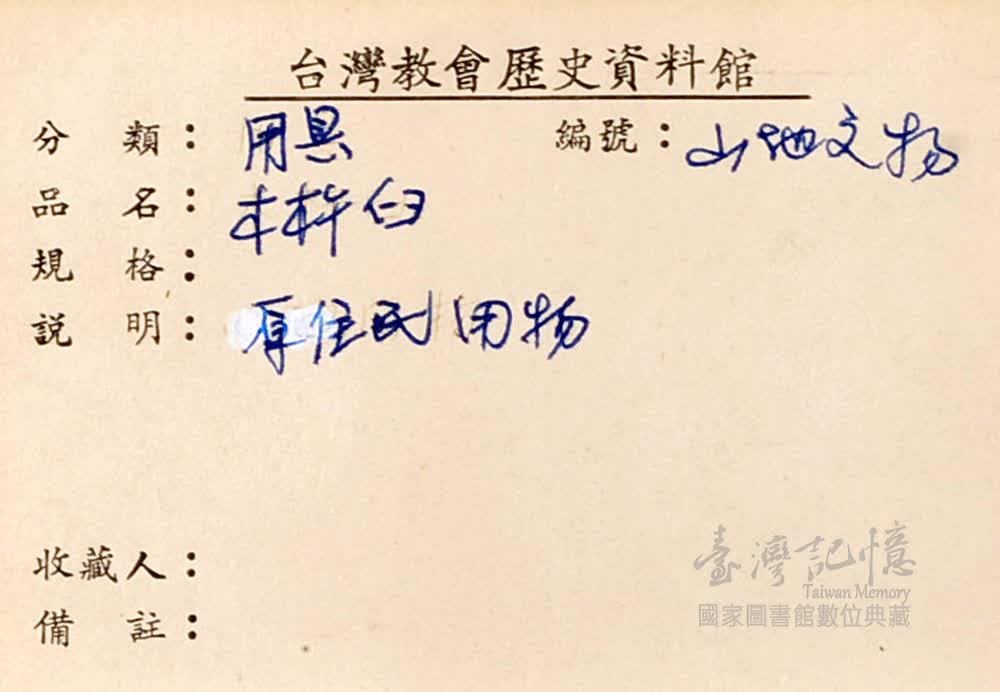 台灣教會歷史資料館
分類：用具 編號：山地文物
品名：木杵臼
規格：
說明：原住民用物
收藏人：
備註：
臺灣記憶
Taiwan Memory
國家圖書館數位典藏